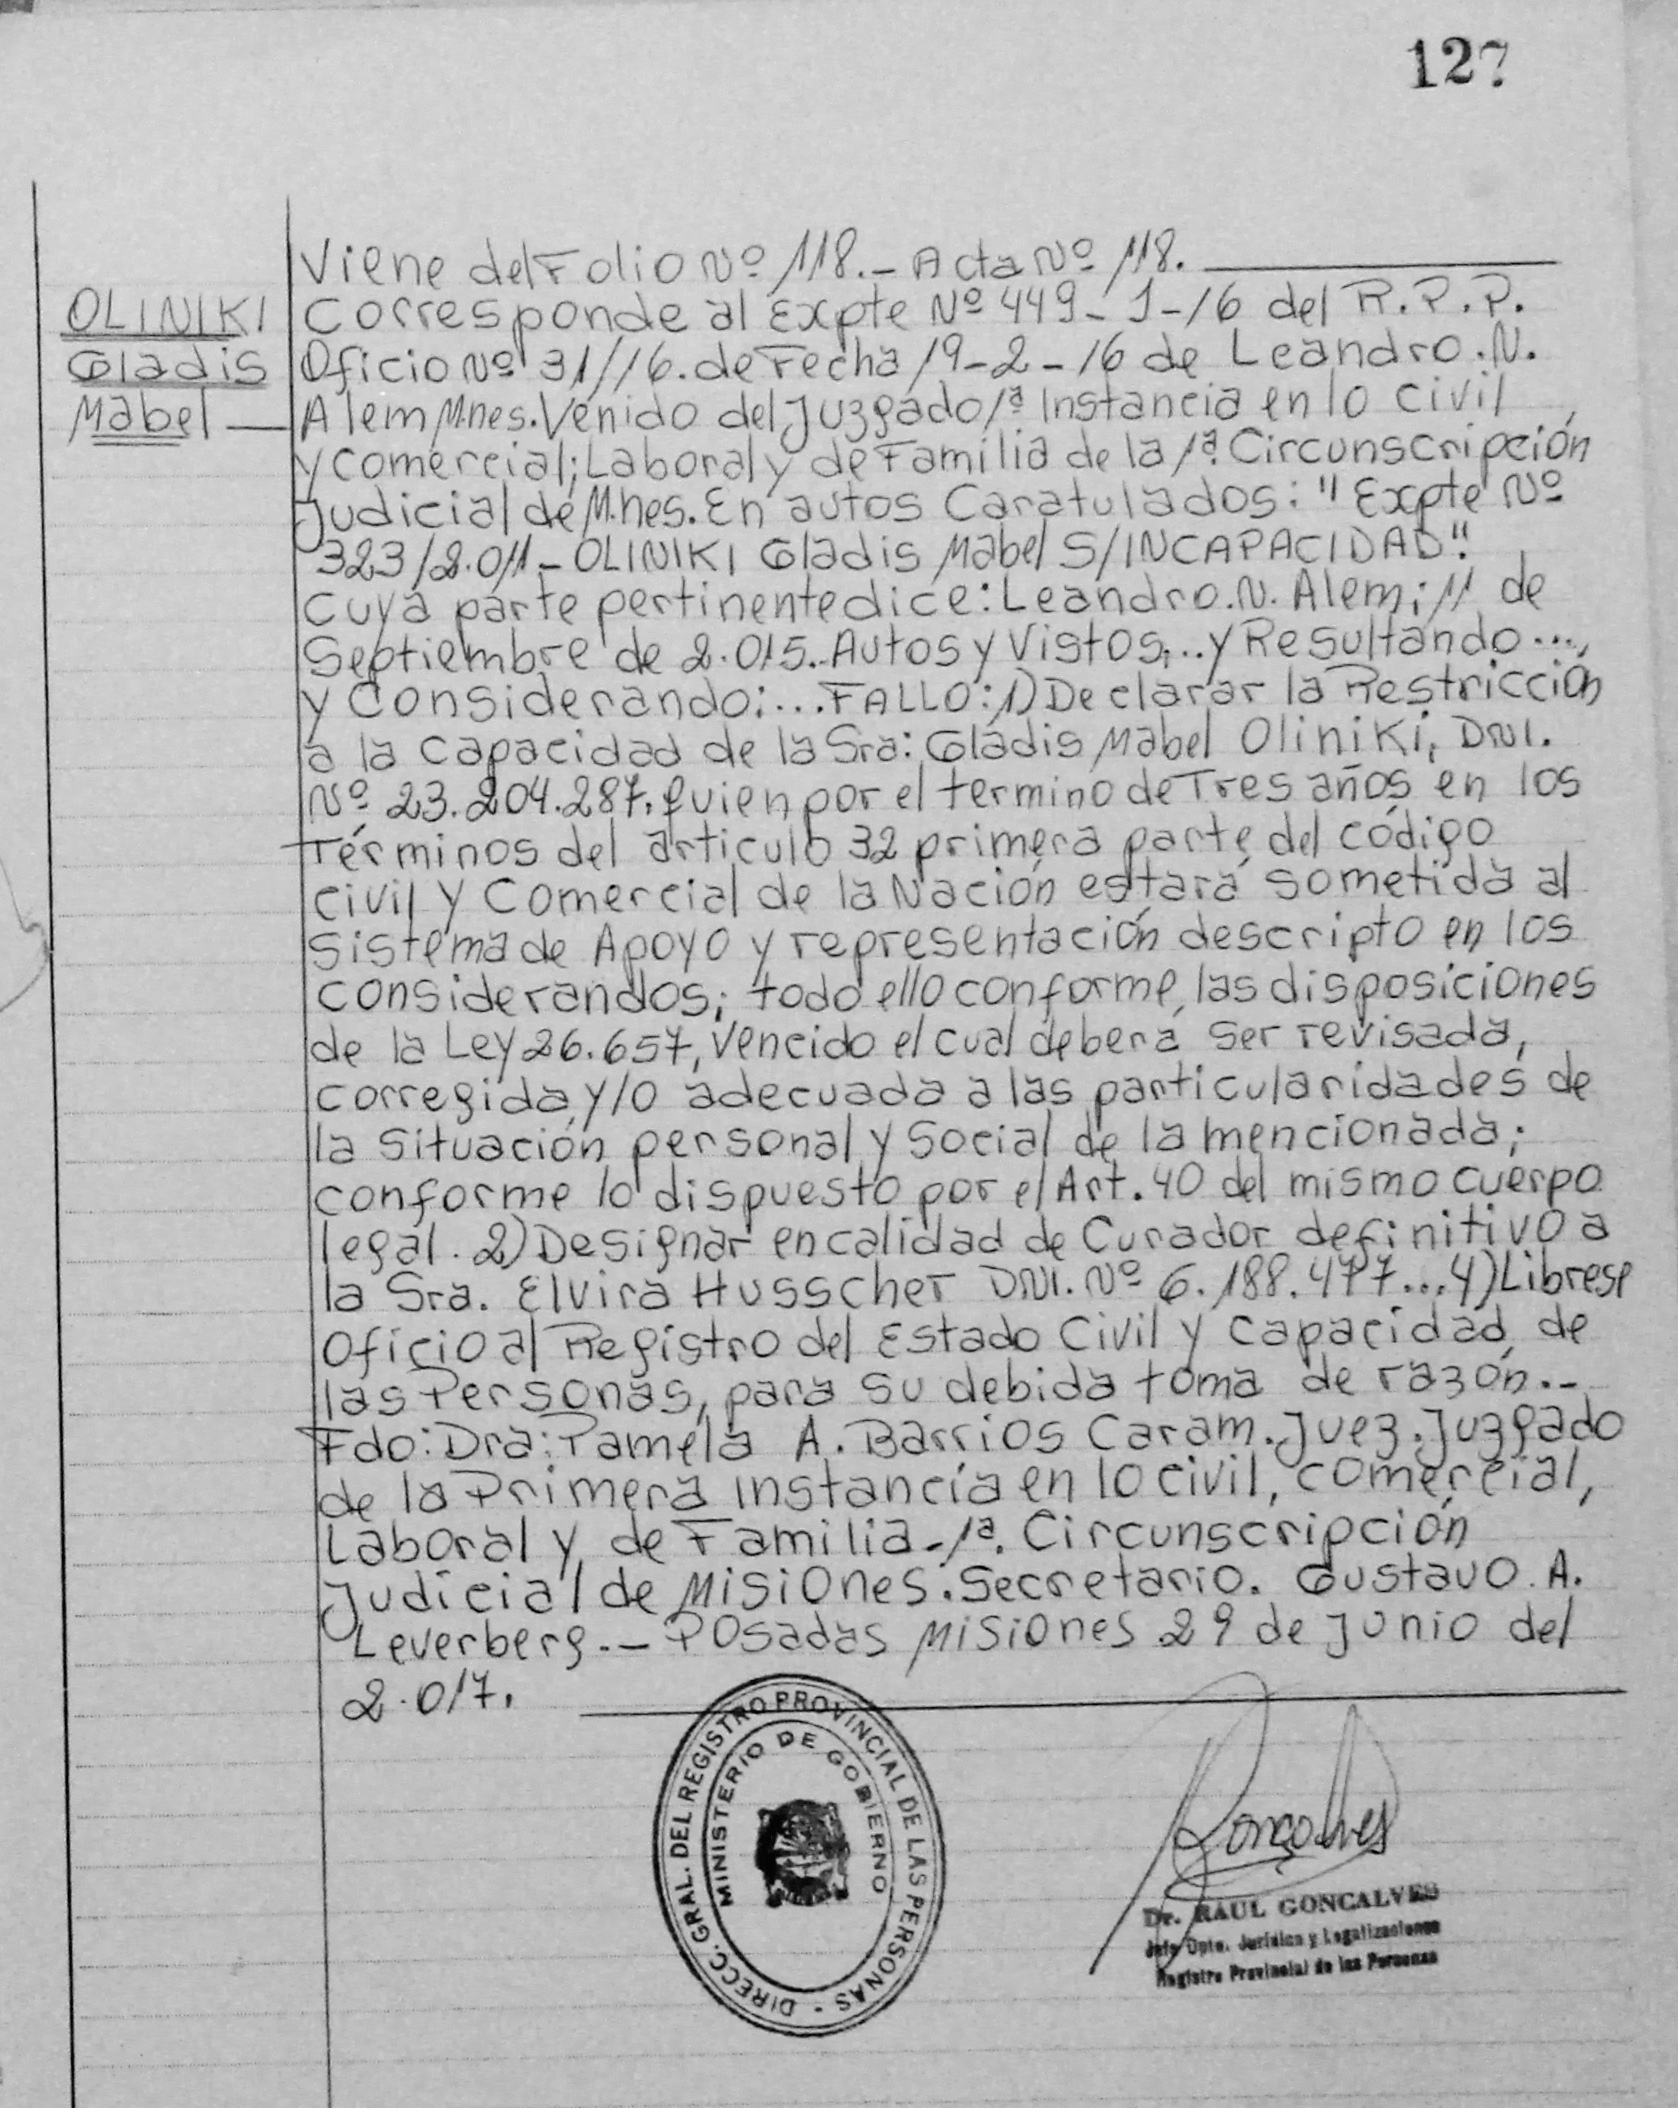 127
Viene del Folio Nº 118.- Acta Nº 118.
OLINIKI
Gladis
Mabel
Corresponde al Expte Nº 449-1-16 del R.P.P.
Oficio Nº 31/16. de Fecha 19-2-16 de Leandro.N.
Alem Mnes. Venido del Juzgado 1ª Instancia en lo Civil
y Comercial; Laboral y de Familia de la 1ª. Circunscripción
Judicial de Mnes. En autos Caratulados: "Expte Nº
323/2.011-OLINIKI Gladis Mabel S/INCAPACIDAD".
Cuya parte pertinente dice: Leandro.N. Alem; 11 de
Septiembre de 2.015. Autos y Vistos;... y Resultando...,
y Considerando:... FALLO: 1) Declarar la Restricción
a la capacidad de la Sra: Gladis Mabel Oliniki, DNI.
Nº 23.204.287, quien por el termino de Tres años en los
Términos del articulo 32 primera parte del código
Civil y Comercial de la Nación estará sometida al
Sistema de Apoyo y representación descripto en los
considerandos; todo ello conforme las disposiciones
de la Ley 26.657, Vencido el cual deberá ser revisada,
corregida y/o adecuada a las particularidades de
la Situación personal y Social de la mencionada;
conforme lo dispuesto por el Art. 40 del mismo cuerpo
legal. 2) Designar en calidad de Curador definitivo a
la Sra. Elvira Husscher DNI. Nº 6.188.477... 4) Librese
Oficio al Registro del Estado Civil y Capacidad de
las Personas, para su debida toma de razón.-
Fdo: Dra: Pamela A. Barrios Caram. Juez. Juzgado
de la Primera instancia en lo Civil, comercial,
Laboral y de Familia-1ª. Circunscripción
Judicial de Misiones. Secretario. Gustavo A.
Leverberg.- Posadas Misiones 29 de Junio del
2.017.
DIRECC. GRAL. DEL REGISTRO PROVINCIAL DE LAS PERSONAS -
MINISTERIO DE GOBIERNO
Goncalves
Dr. RAUL GONCALVES
Jefe Dpto. Jurídica y Legalizaciones
Registro Provincial de las Personas